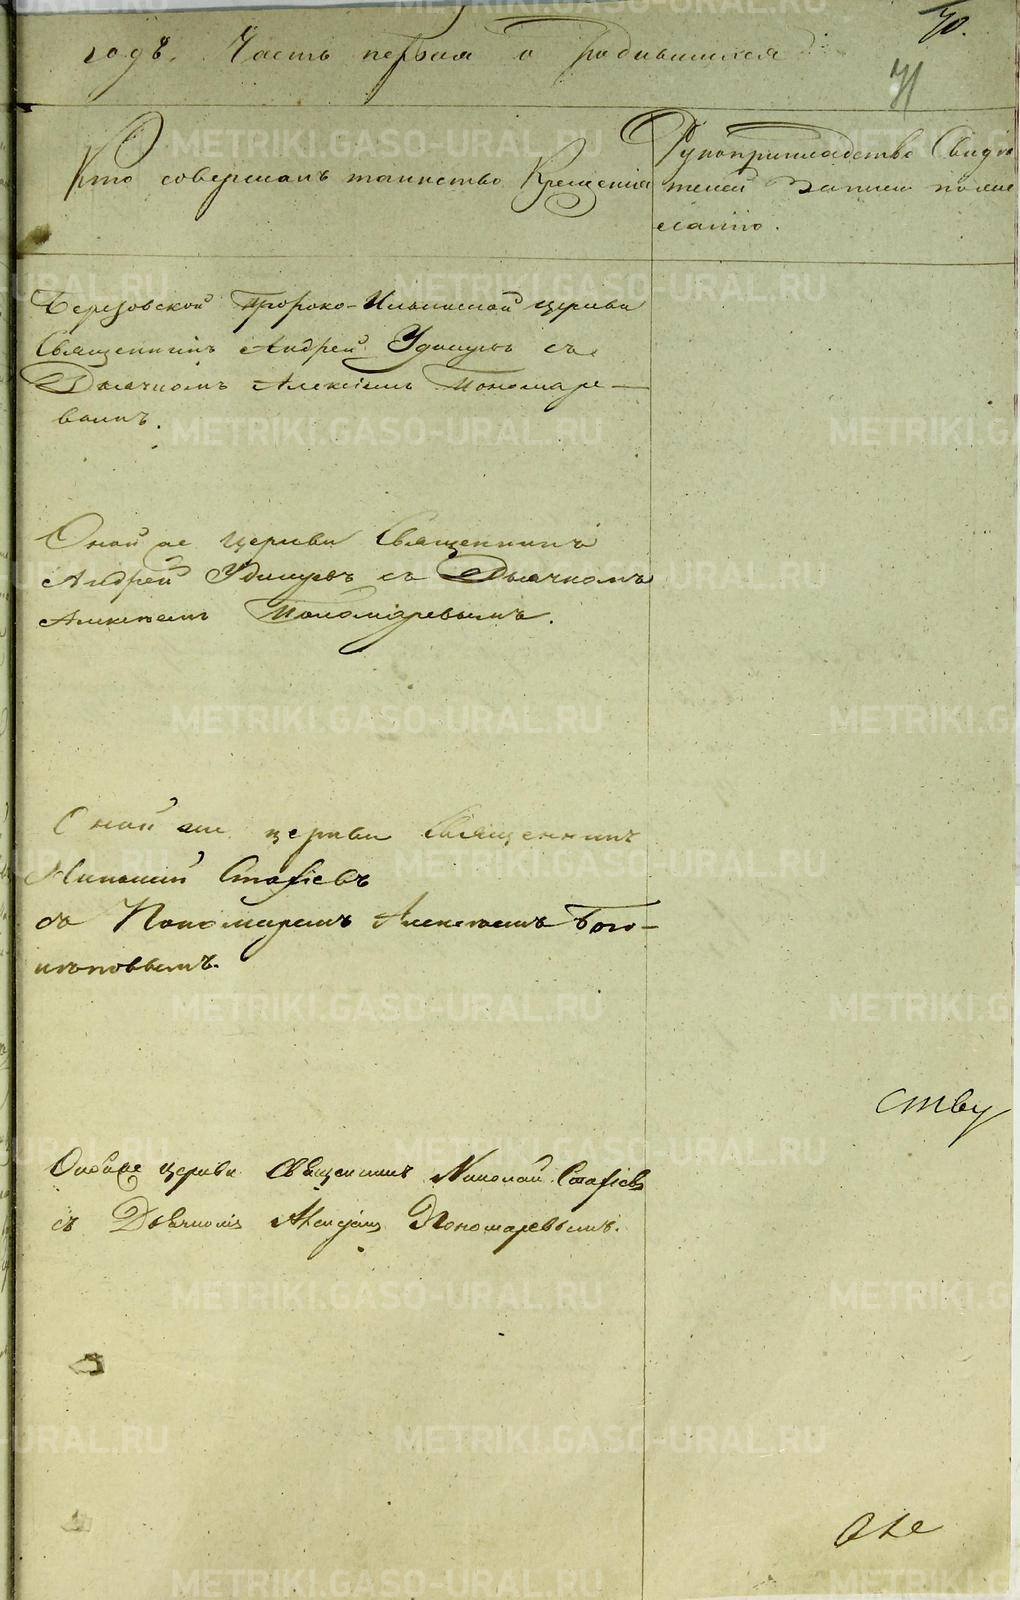 70.
71
годѣ. Часть первая о родившихся
Кто совершалъ таинство Крещенія
Рукоприкладство Свидѣ
телей записи по же
ланію.
Березовской Пророко-Ильинской церкви
Священникъ Андрей Удинцовъ съ
Дьячкомъ Алексіемъ Пономаре-
вымъ.
Оной же церкви Священникъ
Андрей Удинцовъ съ Дьячкомъ
Алексѣемъ Пономаревымъ.
Оной же церкви Священникъ
Николай Стафіевъ
съ Пономаремъ Алексѣемъ Бого-
лѣповымъ.
ству
церкви Священникъ Николай Стафіевъ
съ Дьячкомъ Алексіемъ Пономаревымъ.
METRIKI.GASO-URAL.RU